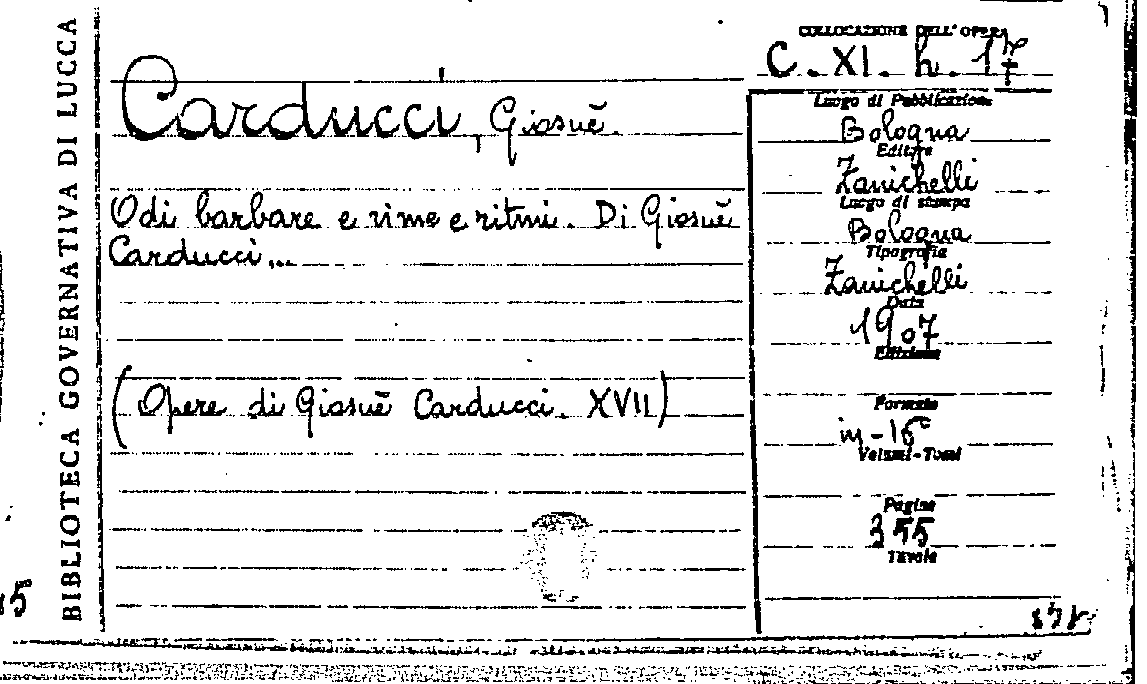 BIBLIOTECA GOVERNATIVA DI LUCCA
COLLOCAZIONE DELL'OPERA
C. XI. h. 17
Carducci, Giosuè.
Odi barbare e rime e ritmi. Di Giosuè
Carducci...
(Opere di Giosuè Carducci. XVII)
Luogo di Pubblicazione
Bologna
Editore
Zanichelli
Luogo di stampa
Bologna
Tipografia
Zanichelli
Data
1907
Edizione
Formato
in-16°
Volumi-Tomi
Pagine
355
Tavole